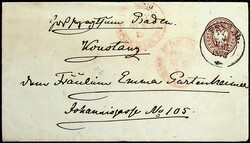 Großherzogthum Baden.
Konstanz
dem Fräulein Emma Gartenheimer
Johannisgasse No 105.